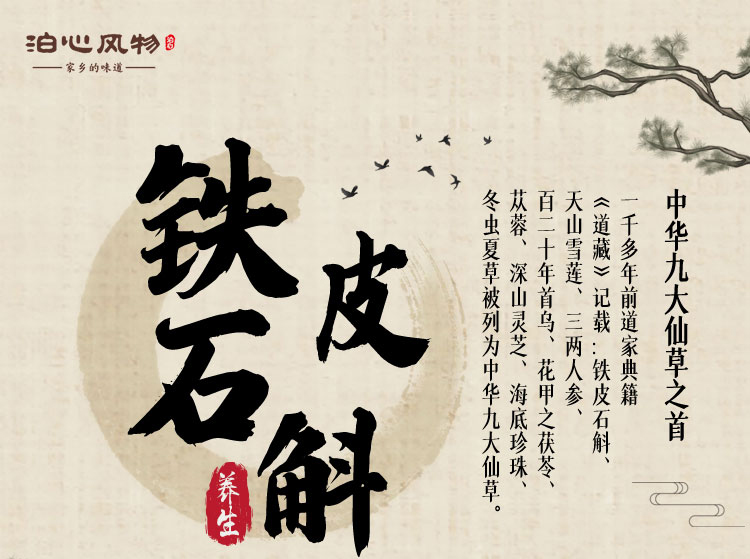 泊心风物
泊心
家乡的味道
铁皮石斛
养生
中华九大仙草之首
一千多年前道家典籍
《道藏》记载:铁皮石斛、
天山雪莲、三两人参、
百二十年首乌、花甲之茯苓、
苁蓉、深山灵芝、海底珍珠、
冬虫夏草被列为中华九大仙草。